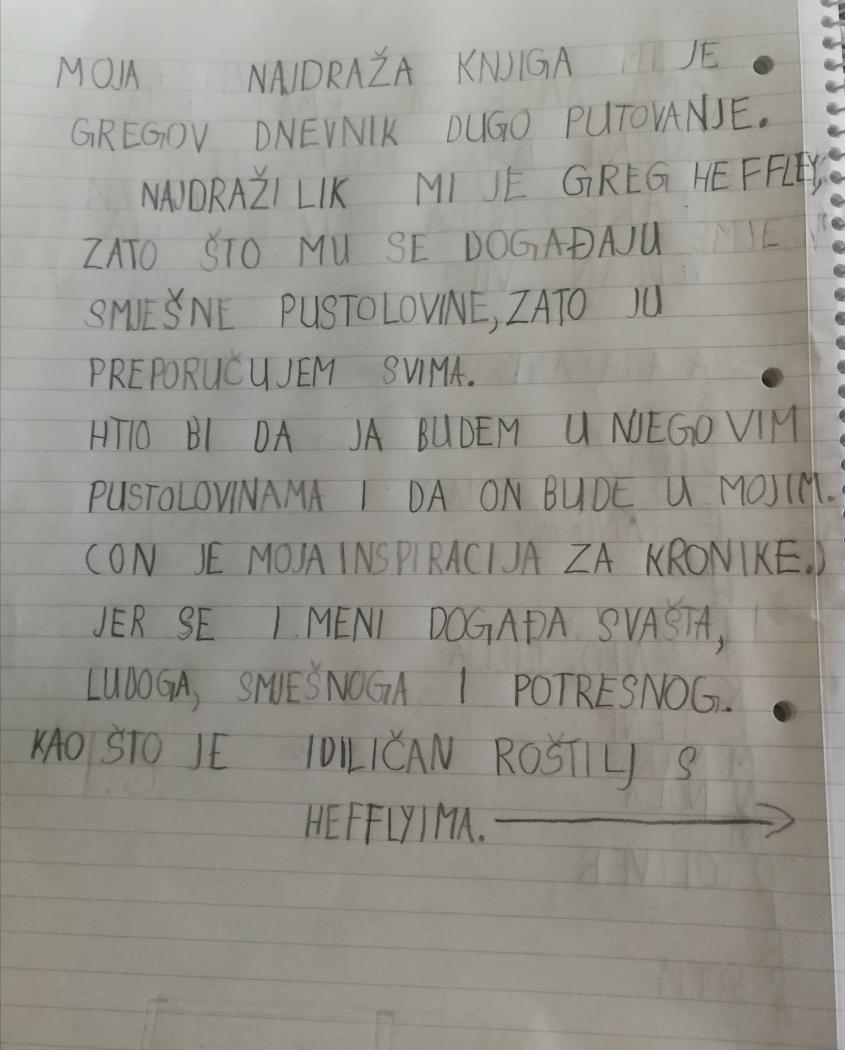 MOJA NAJDRAŽA KNJIGA JE
GREGOV DNEVNIK DUGO PUTOVANJE.
NAJDRAŽI LIK MI JE GREG HEFFLEY,
ZATO ŠTO MU SE DOGAĐAJU
SMJEŠNE PUSTOLOVINE, ZATO JU
PREPORUČUJEM SVIMA.
HTIO BI DA JA BUDEM U NJEGOVIM
PUSTOLOVINAMA I DA ON BUDE U MOJIM.
(ON JE MOJA INSPIRACIJA ZA KRONIKE.)
JER SE I MENI DOGAĐA SVAŠTA,
LUDOGA, SMJEŠNOGA I POTRESNOG.
KAO ŠTO JE IDILIČAN ROŠTILJ S
HEFFLYIMA.